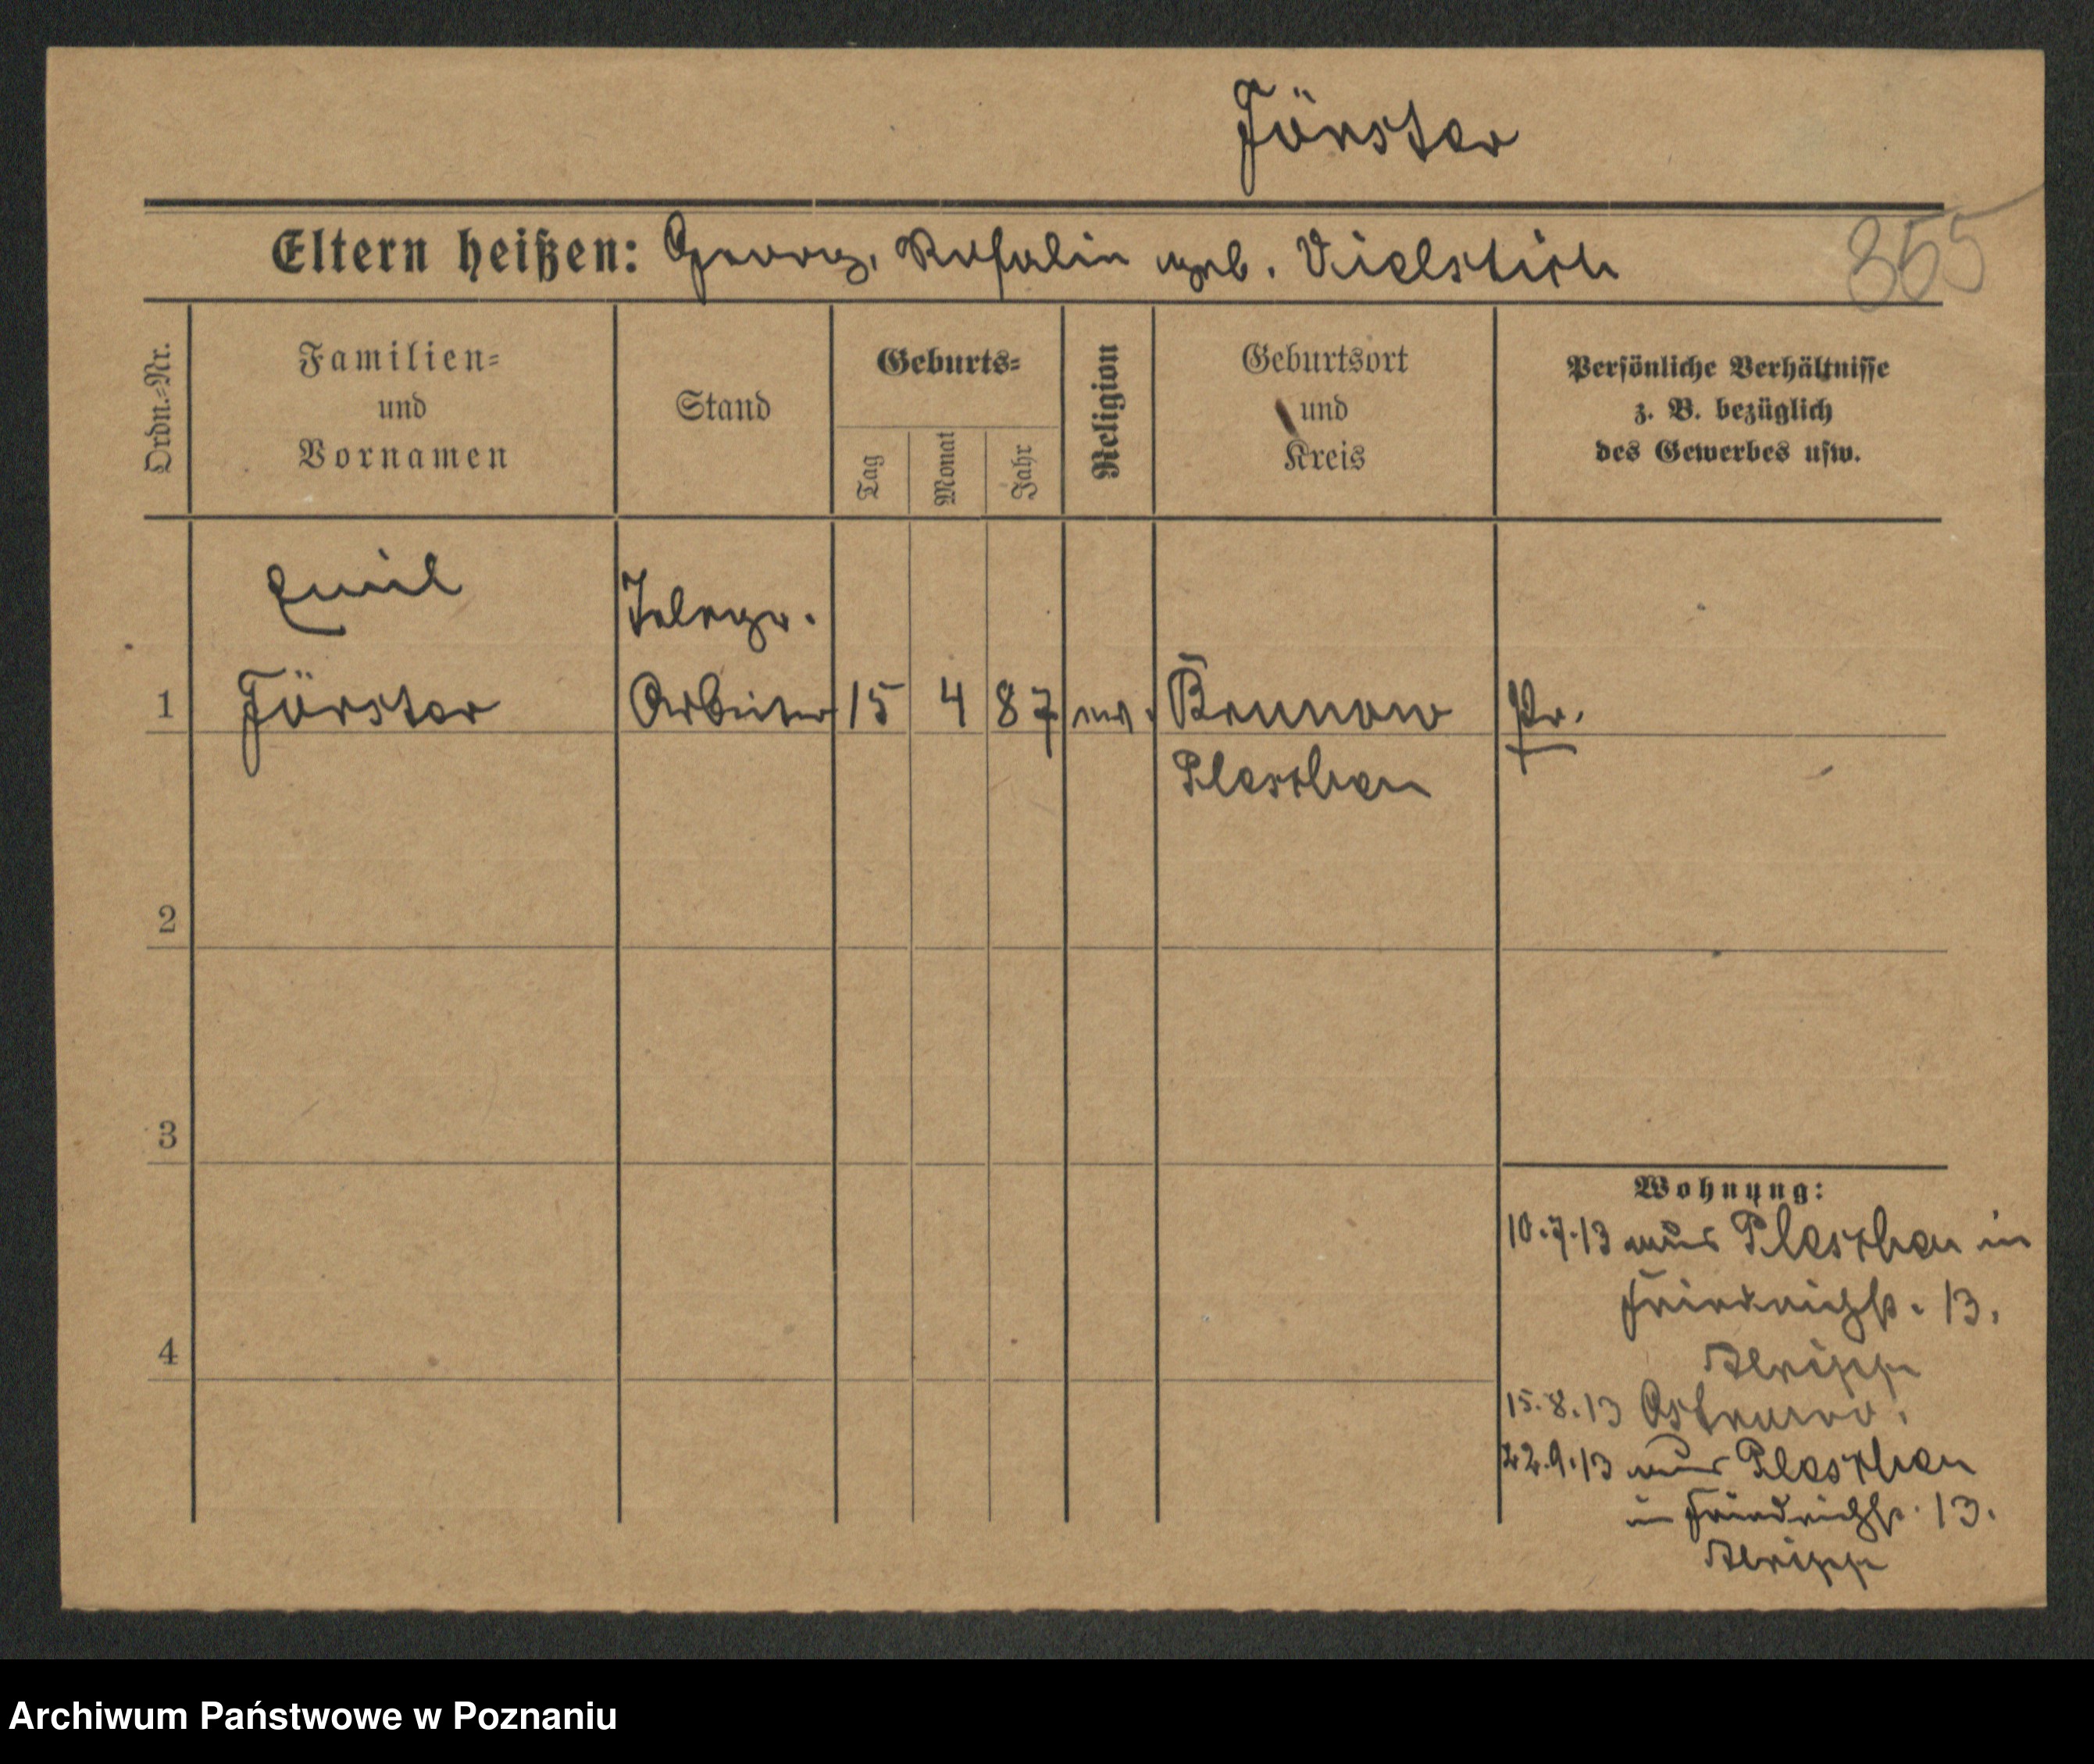 Förster
Eltern heißen: Georg, Rosalie geb. Vielstich
355
Ordn.=Nr.
Familien=
und
Vornamen
Stand
Geburts=
Tag
Monat
Jahr
Religion
Geburtsort
und
Kreis
Persönliche Verhältnisse
z. B. bezüglich
des Gewerbes usw.
Emil
Telegr.
1 Förster Arbeiter 15 4 87 Brunow Pr.
Pleschen
2
3
4
Wohnung:
10.7.13 aus Pleschen in
Friedrichstr. 13.
15.8.13 Ostrowo.
22.9.13 aus Pleschen
in Friedrichstr. 13.
Archiwum Państwowe w Poznaniu